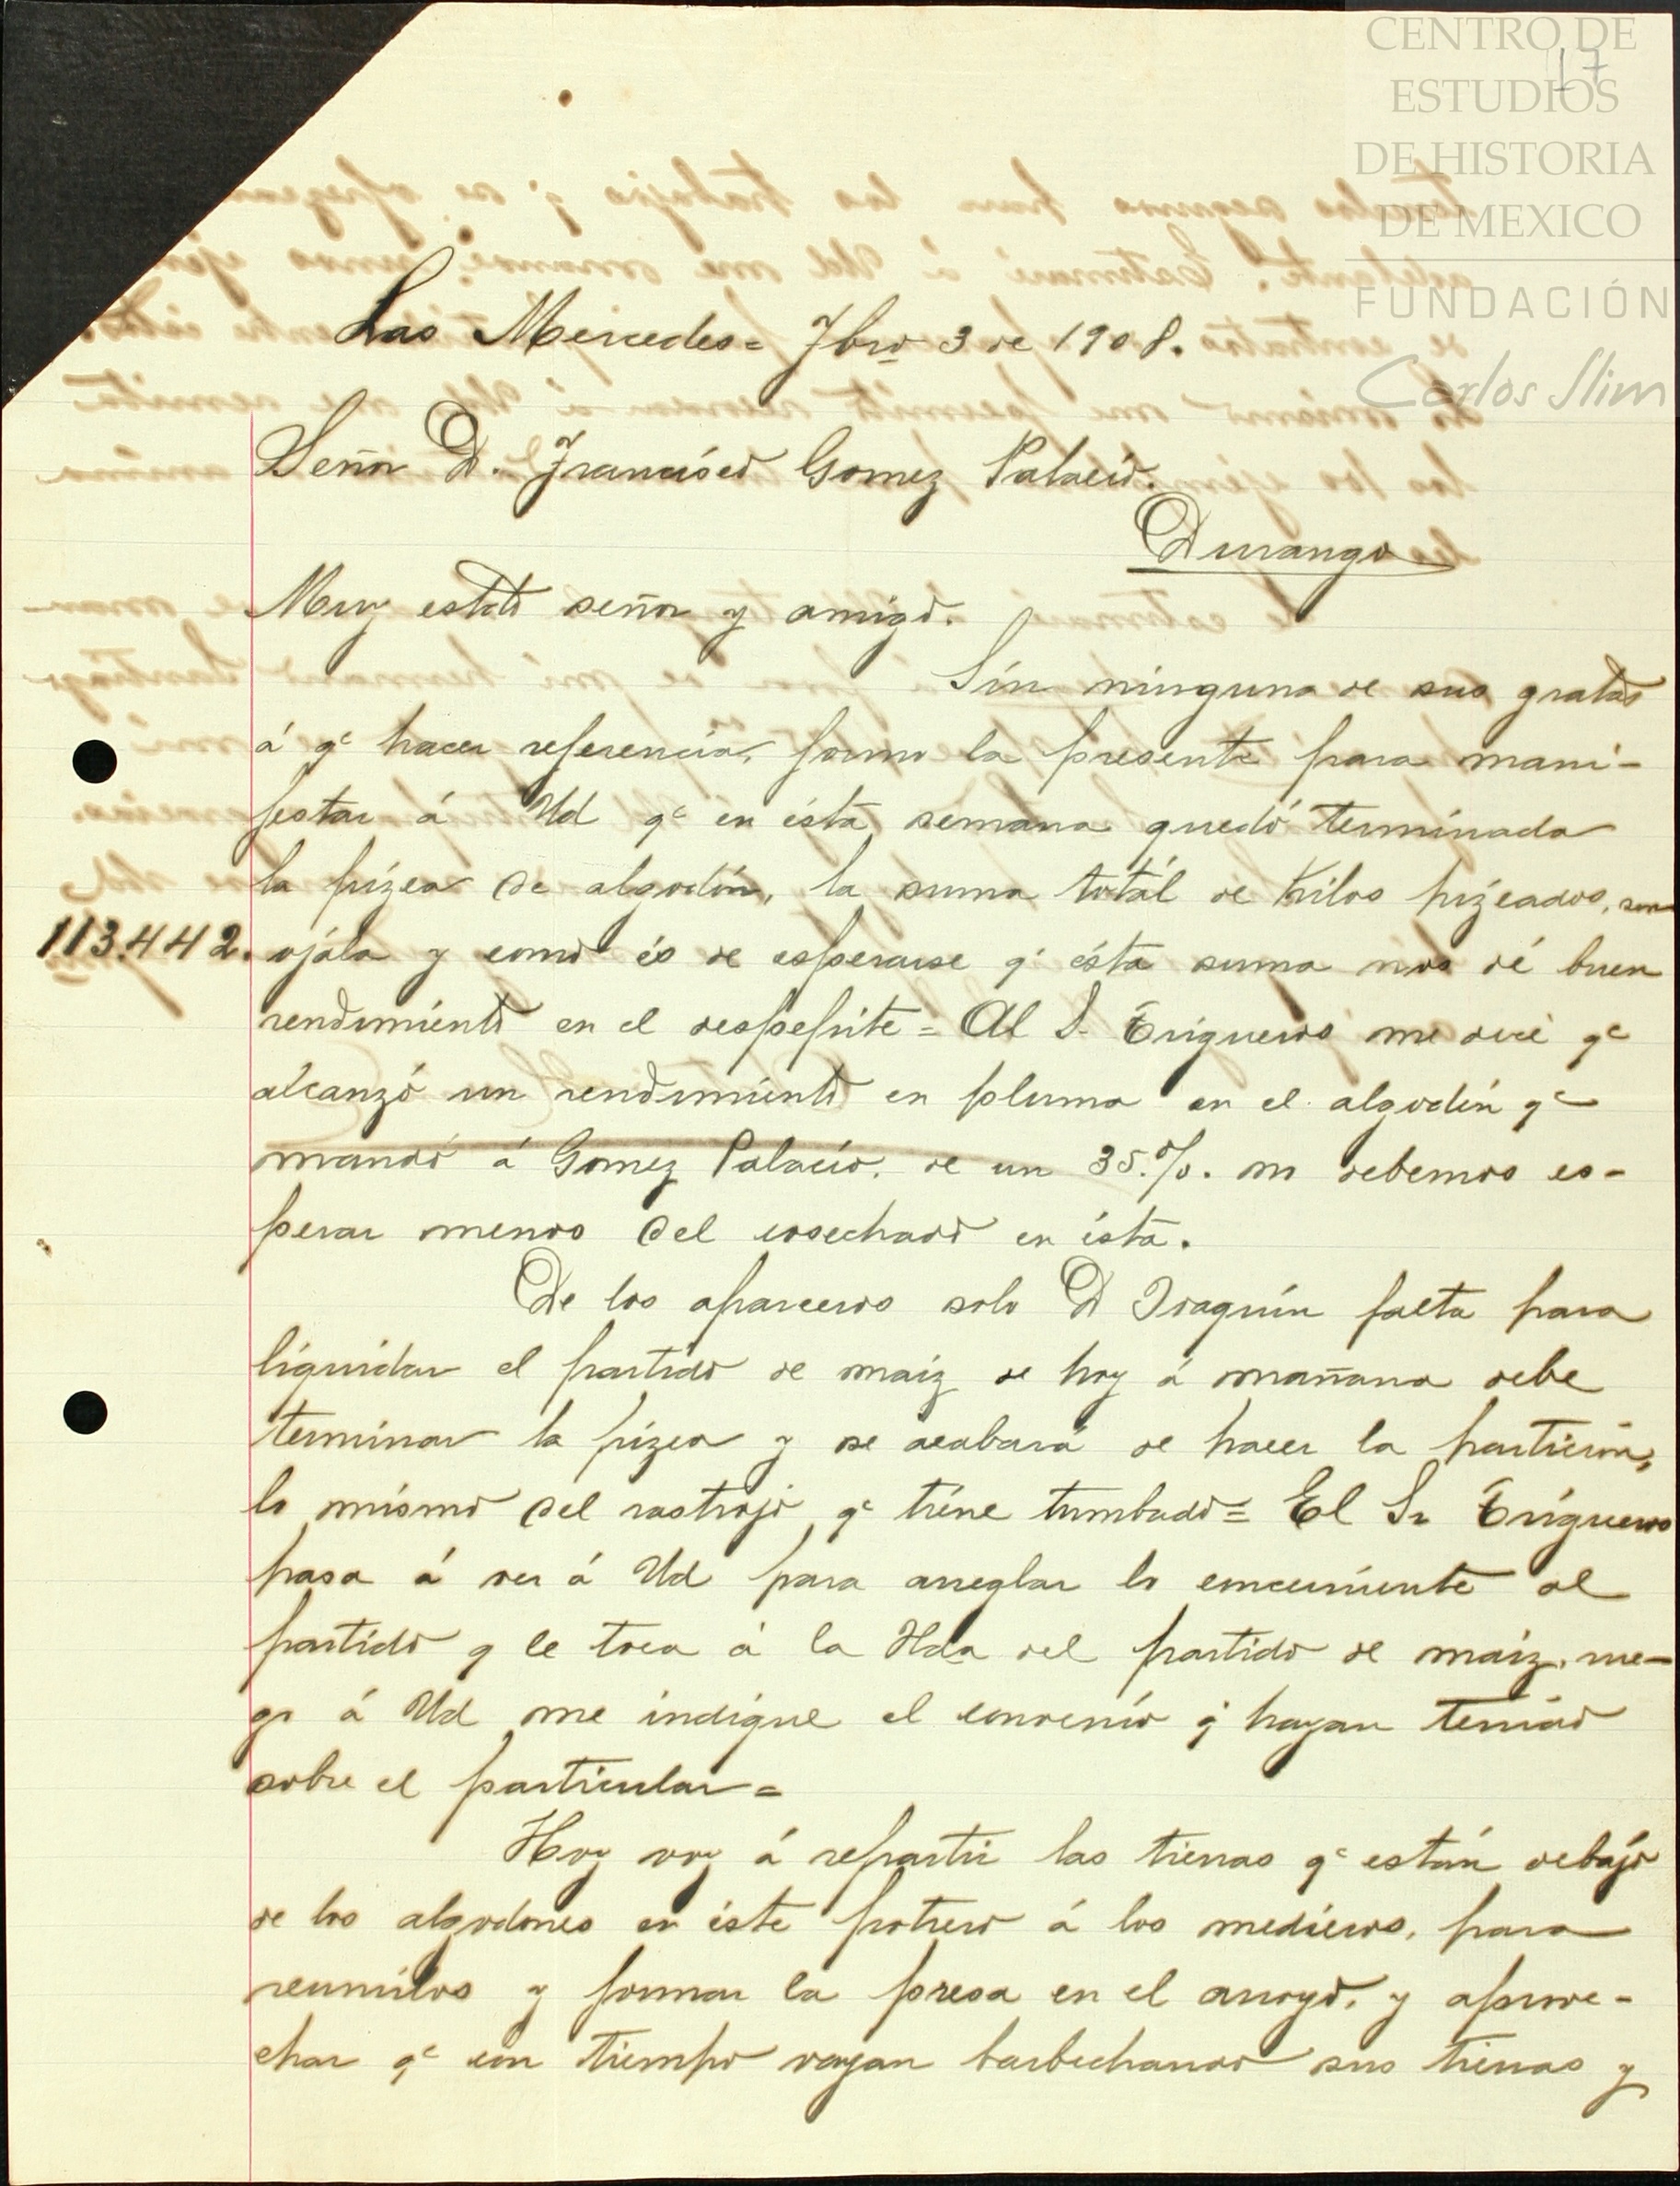 CENTRO DE
ESTUDIOS
DE HISTORIA
DE MEXICO
FUNDACIÓN
Carlos Slim
17
Las Mercedes= 7bre 3 de 1908.
Señor D. Francisco Gomez Palacio.
Durango
Muy estdo señor y amigo.
Sin ninguna de sus gratas
á qe hacer referencia, formo la presente para mani-
festar á Ud qe en ésta semana quedó terminada
la pizca de algodón, la suma totál de Kilos pizcados, son
113.442. ojála y como és de esperarse qe ésta suma nos dé buen
rendimiento en el despepite= Al S. Trigueros me dice qe
alcanzó un rendimiento en pluma en el algodón qe
mandó á Gomez Palacio, de un 35.%. no debemos es-
perar menos del cosechado en ésta.
De los aparceros solo D Joaquín falta para
liquidar el partido de maiz de hoy á mañana debe
terminar la pizca y se acabará de hacer la partición,
lo mismo del rastrojo qe tiene tumbado= El Sr Trigueros
pasa á ver á Ud para arreglar lo concerniente al
partido q le toca á la Hda del partido de maiz, rue-
go á Ud me indique el convenio q hayan tenido
sobre el particular=
Hoy voy á repartir las tierras qe están debájo
de los algodones en éste potrero á los medieros, para
reunirlos y formar la presa en el arroyo, y aprove-
char qe con tiempo vayan barbechando sus tierras y